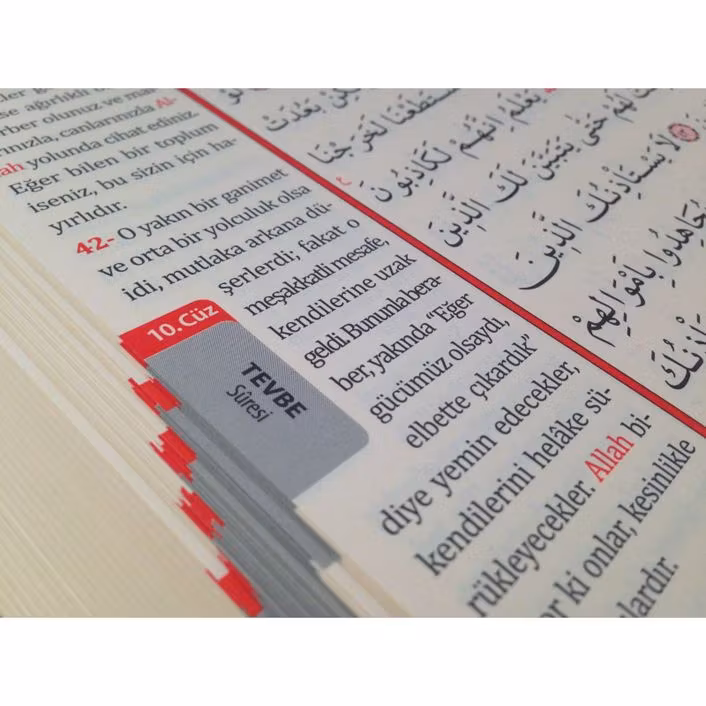 se ağırlıklı
rber olunuz ve mal-
rınızla, canlarınızla Al-
lah yolunda cihat ediniz
Eğer bilen bir toplum
iseniz, bu sizin için ha-
yırlıdır.
42- O yakın bir ganimet
ve orta bir yolculuk olsa
idi, mutlaka arkana dü-
şerlerdi; fakat o
meşakkatli mesafe,
kendilerine uzak
geldi. Bununla bera-
ber, yakında “Eğer
gücümüz olsaydı,
elbette çıkardık”
diye yemin edecekler,
kendilerini helâke sü-
rükleyecekler. Allah bi-
or ki onlar, kesinlikle
lardır.
10. Cüz
TEVBE
Sûresi
بَعُدَتْ
لَخَرَجْنَا
يَعْلَمُ اِنَّهُمْ لَكَاذِبُونَ
لَهُمْ حَتّٰى يَتَبَيَّنَ لَكَ الَّذ۪ينَ
لَا يَسْتَأْذِنُكَ الَّذ۪ينَ
يُجَاهِدُوا بِاَمْوَالِهِمْ